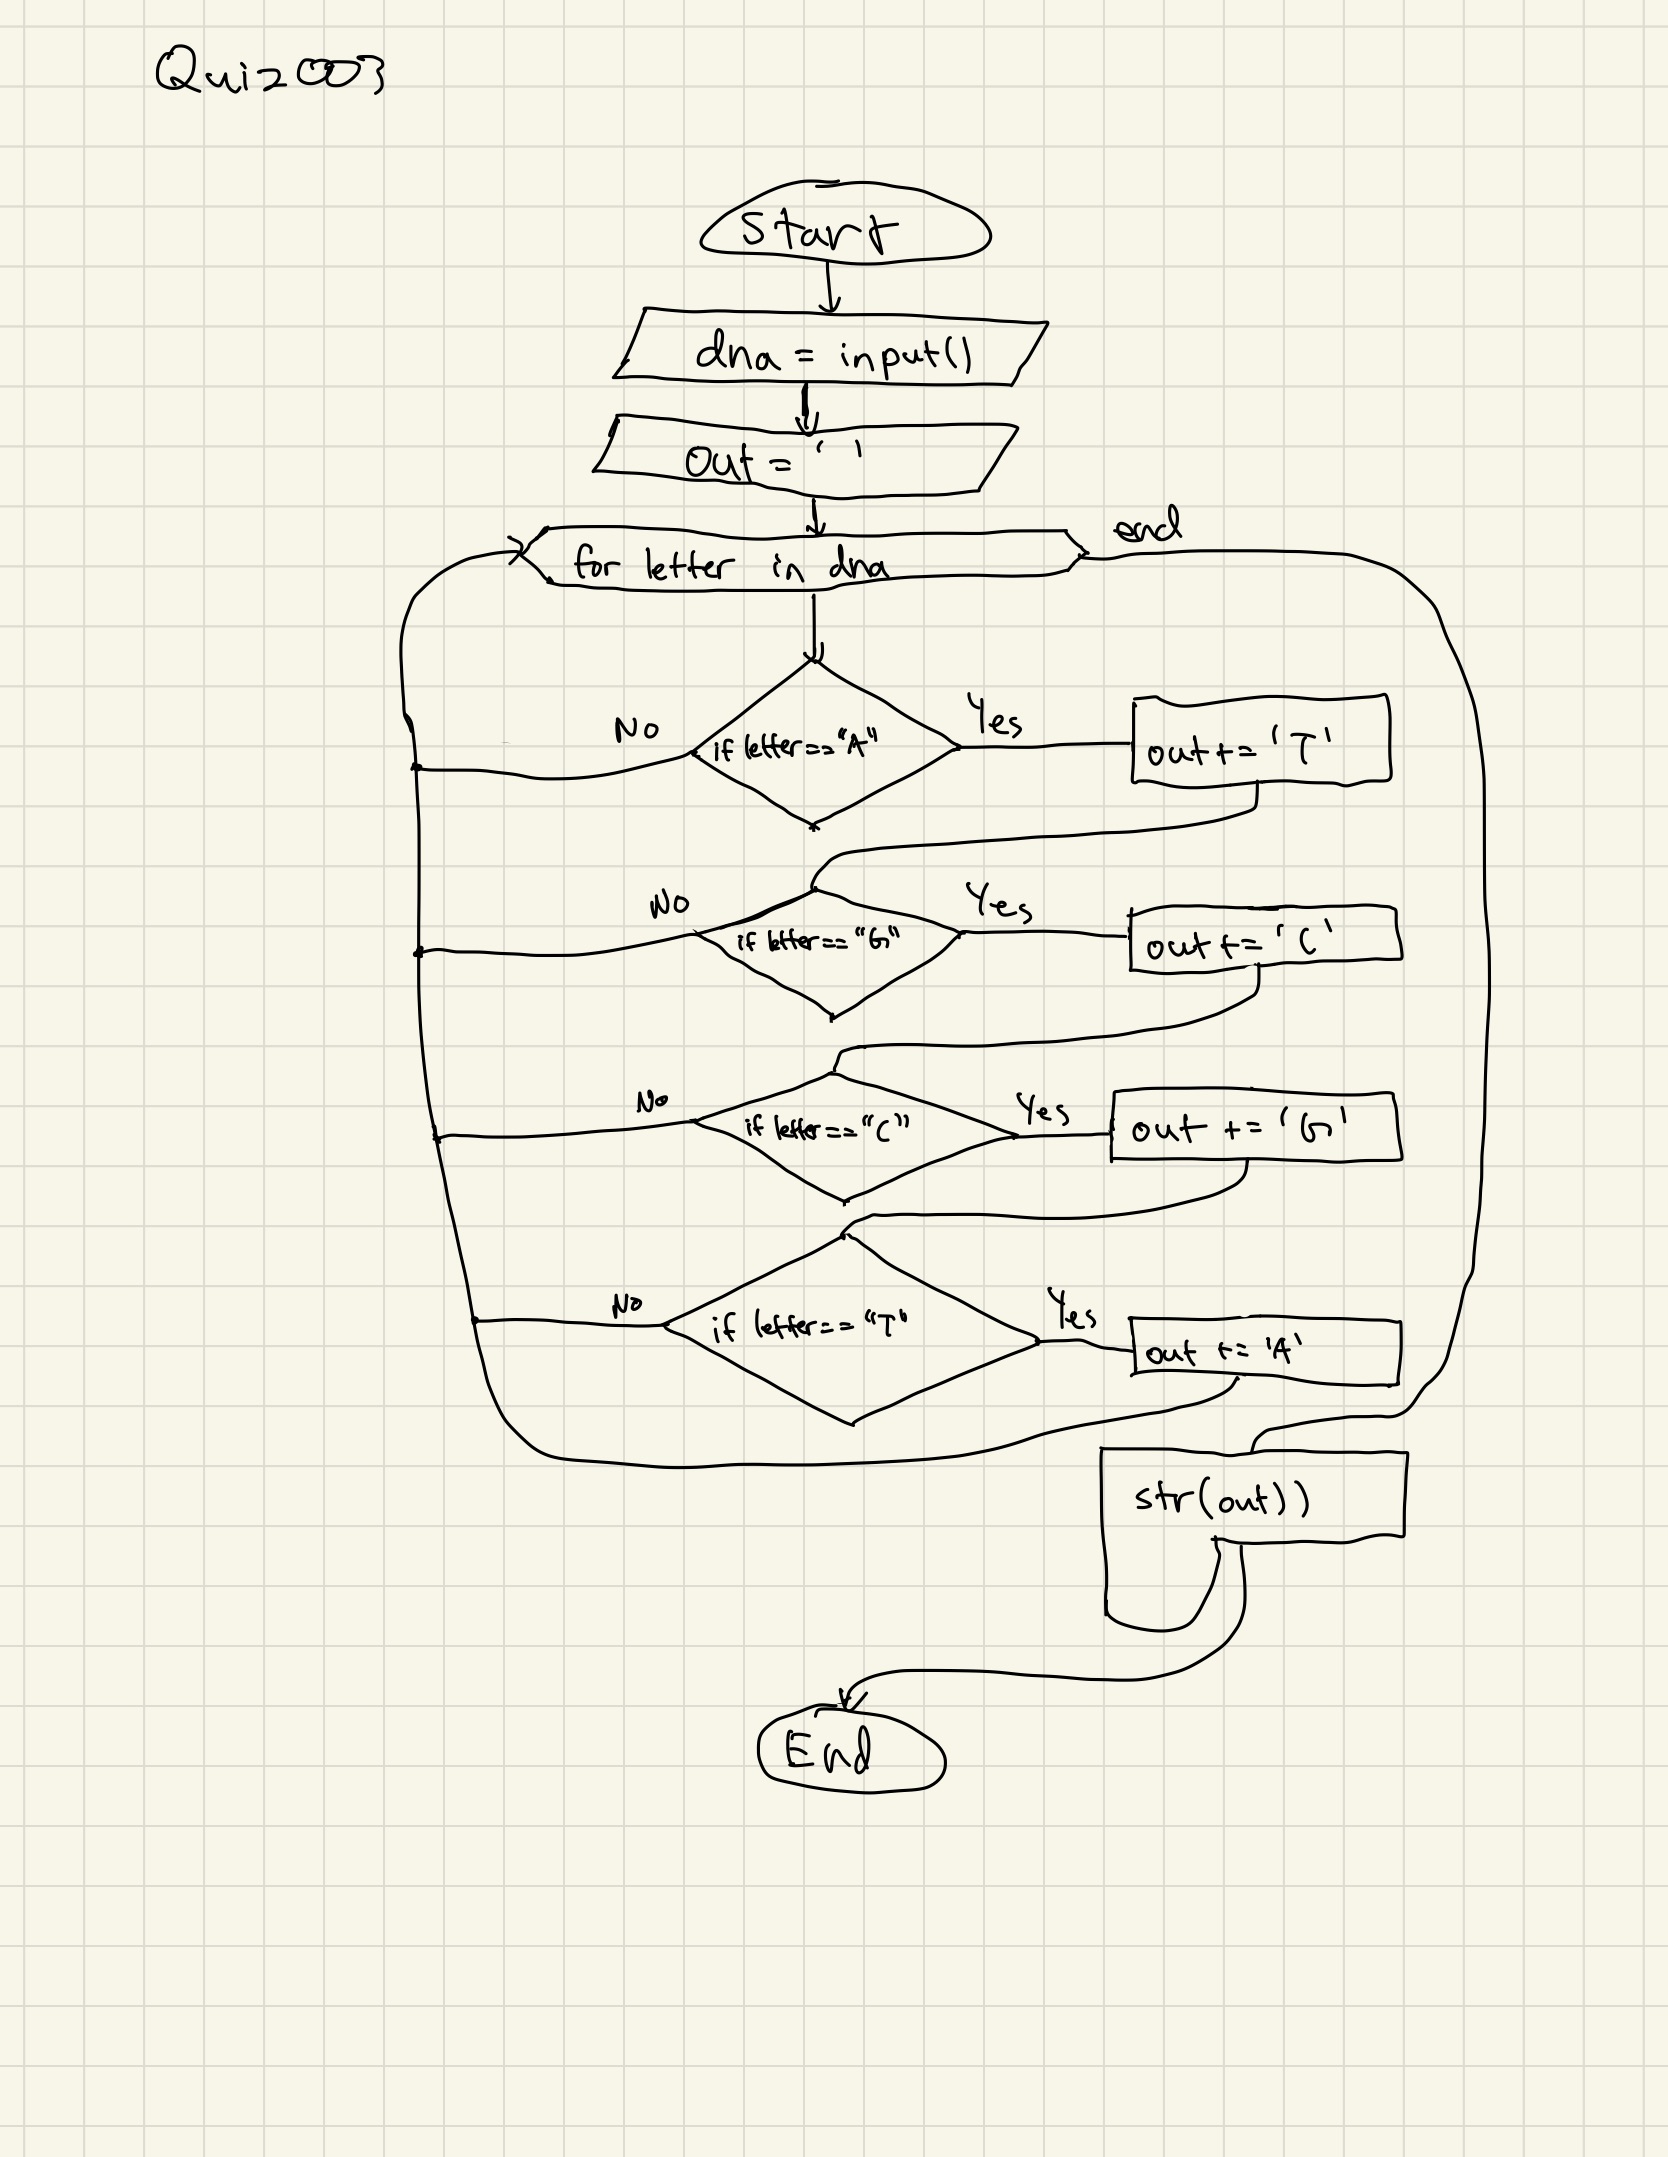 Quiz003
Start
dna = input()
Out = ' '
end
for letter in dna
No
if letter=="A"
Yes
out += 'T'
No
if letter=="G"
Yes
out += 'C'
No
if letter=="C"
Yes
out += 'G'
No
if letter=="T"
Yes
out += 'A'
str(out))
End